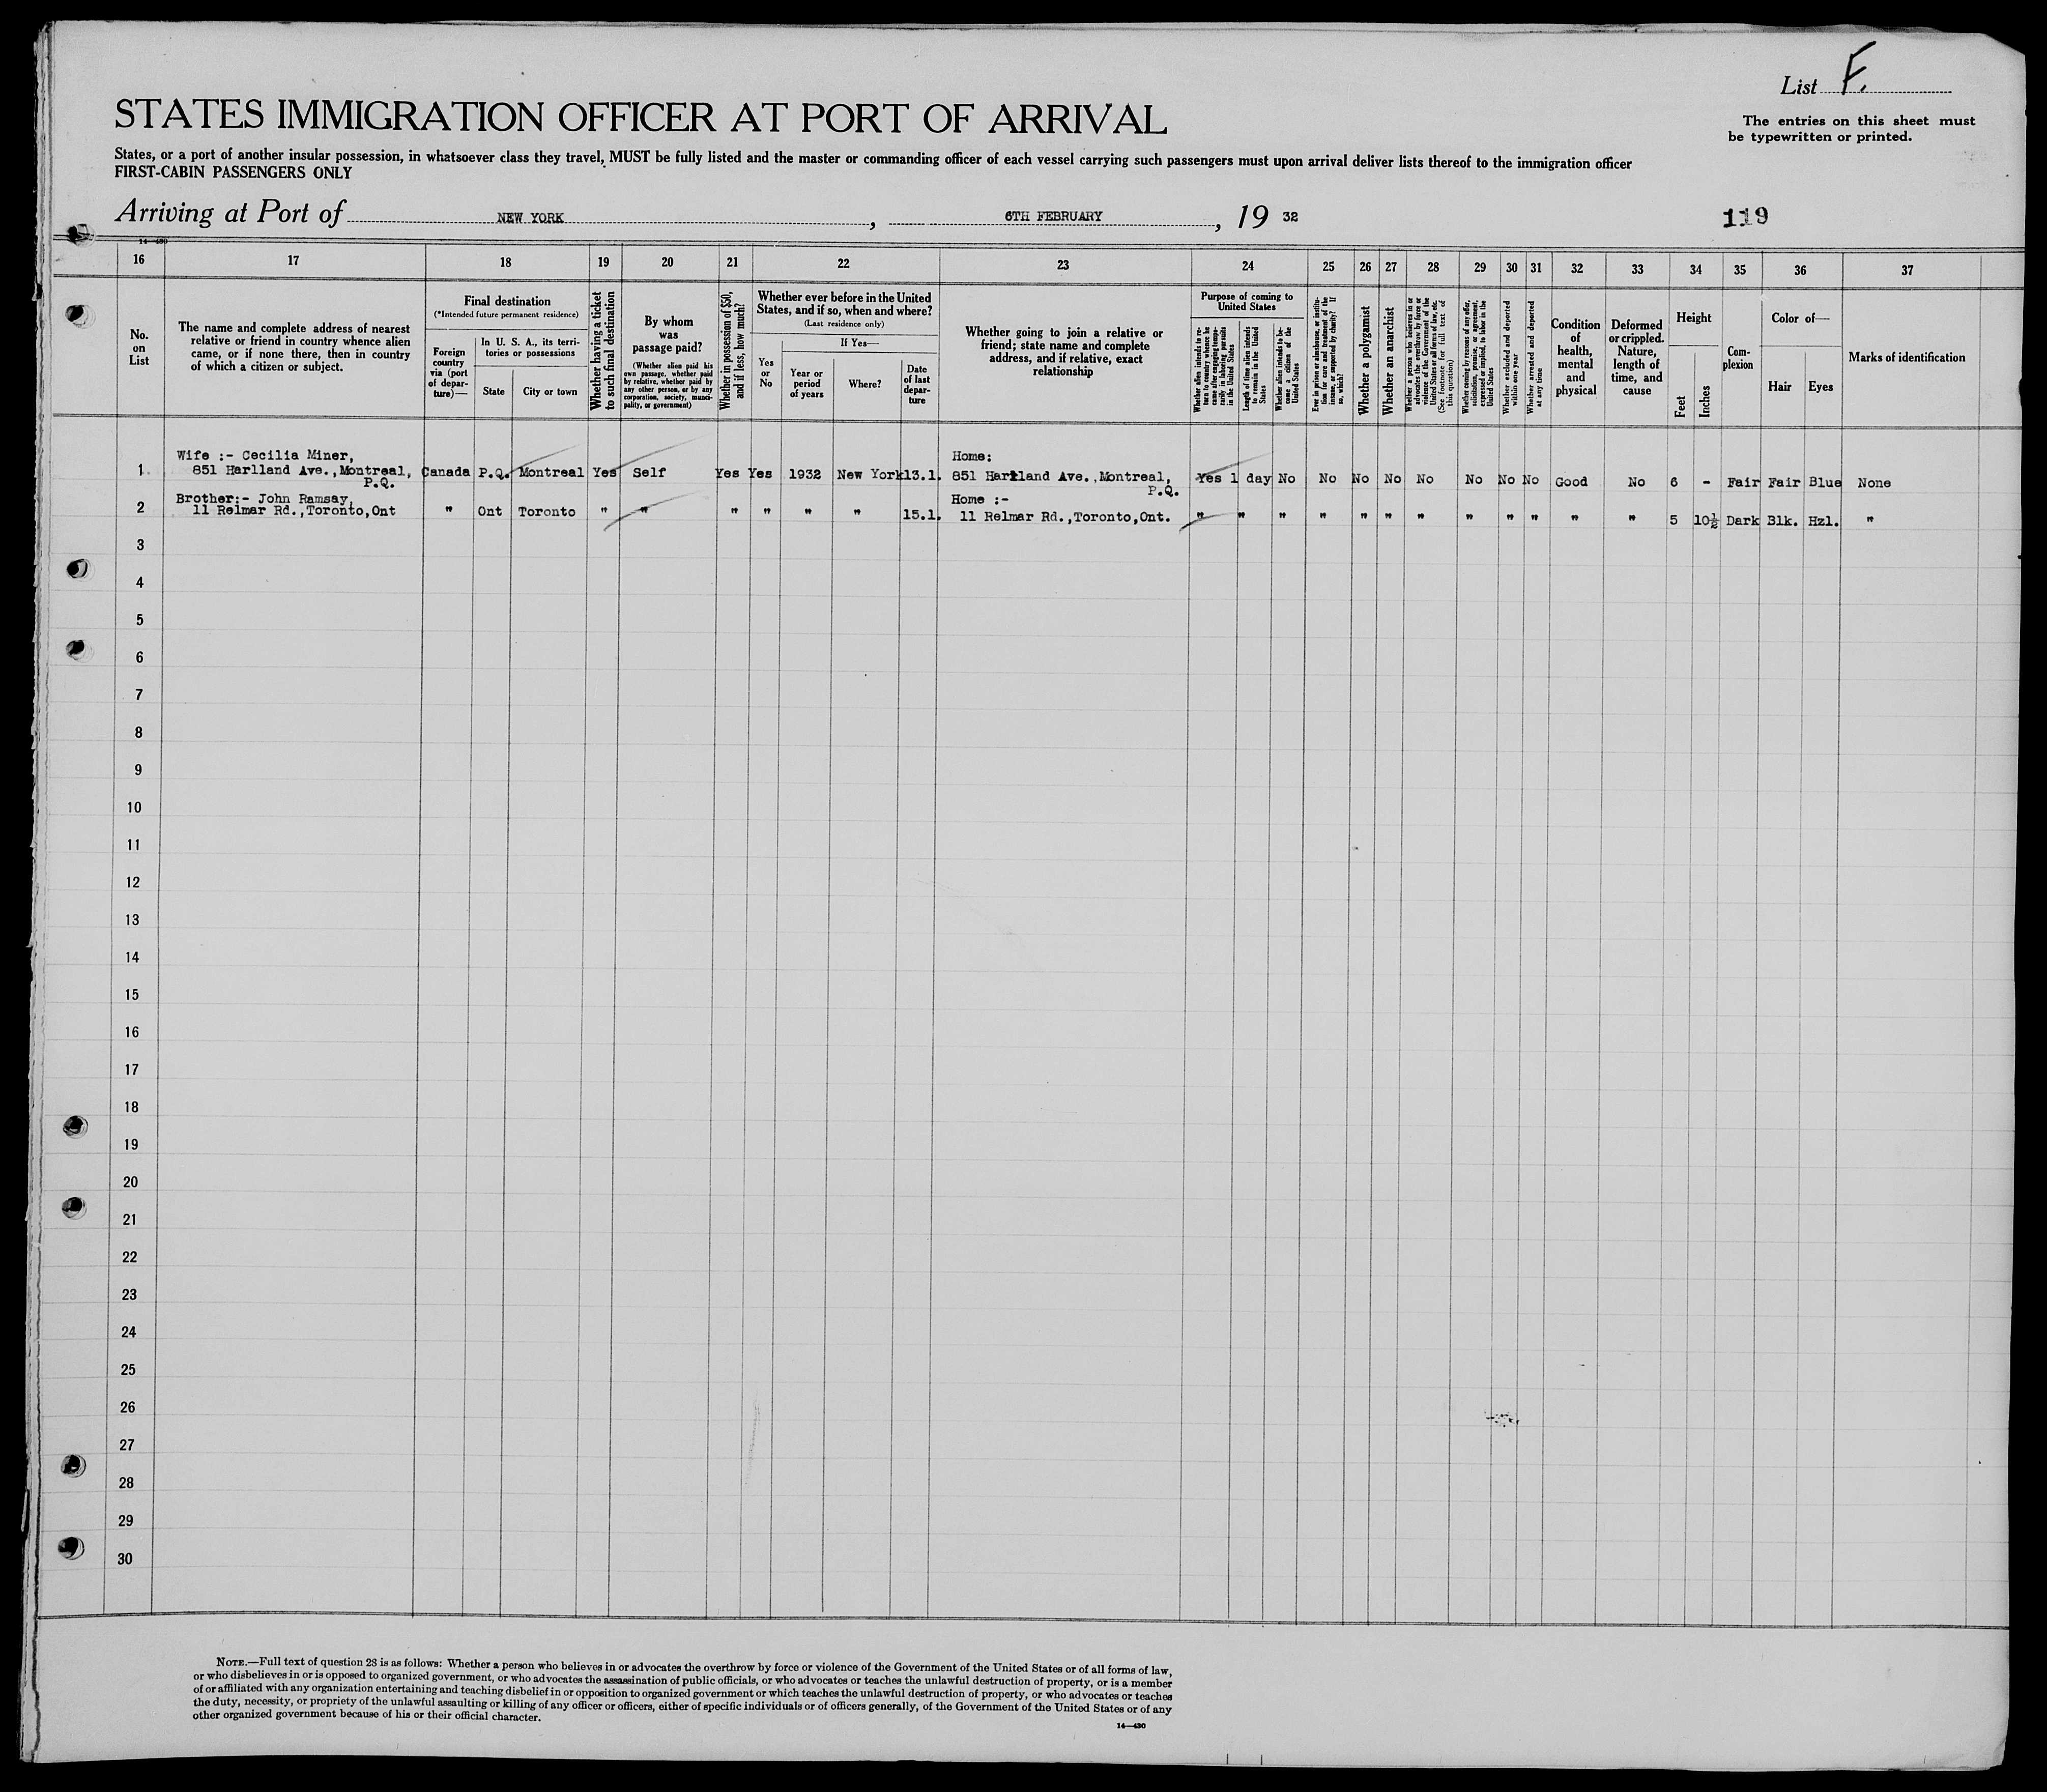 List F.
STATES IMMIGRATION OFFICER AT PORT OF ARRIVAL
The entries on this sheet must
be typewritten or printed.
States, or a port of another insular possession, in whatsoever class they travel, MUST be fully listed and the master or commanding officer of each vessel carrying such passengers must upon arrival deliver lists thereof to the immigration officer
FIRST-CABIN PASSENGERS ONLY
Arriving at Port of NEW YORK, 6TH FEBRUARY, 19 32
119
14—430
16 17 18 19 20 21 22 23 24 25 26 27 28 29 30 31 32 33 34 35 36 37
No.
on
List
The name and complete address of nearest
relative or friend in country whence alien
came, or if none there, then in country
of which a citizen or subject.
Final destination
(*Intended future permanent residence)
Foreign
country
via (port
of depar-
ture)—
In U. S. A., its terri-
tories or possessions
State
City or town
Whether having a ticket
to such final destination
By whom
was
passage paid?
(Whether alien paid his
own passage, whether paid
by relative, whether paid by
any other person, or by any
corporation, society, munici-
pality, or government)
Whether in possession of $50,
and if less, how much?
Whether ever before in the United
States, and if so, when and where?
(Last residence only)
Yes
or
No
If Yes—
Year or
period
of years
Where?
Date
of last
depar-
ture
Whether going to join a relative or
friend; state name and complete
address, and if relative, exact
relationship
Purpose of coming to
United States
Whether alien intends to re-
turn to country whence he
came after engaging tempo-
rarily in laboring pursuits
in the United States
Length of time alien intends
to remain in the United
States
Whether alien intends to be-
come a citizen of the
United States
Ever in prison or almshouse, or institu-
tion for care and treatment of the
insane, or supported by charity? If
so, which?
Whether a polygamist
Whether an anarchist
Whether a person who believes in or
advocates the overthrow by force or
violence of the Government of the
United States or all forms of law, etc.
(See footnote for full text of
this question)
Whether coming by reasons of any offer,
solicitation, promise, or agreement,
expressed or implied, to labor in the
United States
Whether excluded and deported
within one year
Whether arrested and deported
at any time
Condition
of
health,
mental
and
physical
Deformed
or crippled.
Nature,
length of
time, and
cause
Height
Feet
Inches
Com-
plexion
Color of—
Hair
Eyes
Marks of identification
Wife :- Cecilia Miner,
Home:
1 851 Harlland Ave., Montreal, Canada P.Q. Montreal Yes Self Yes Yes 1932 New York 13.1. 851 Hartland Ave., Montreal, Yes 1 day No No No No No No No No Good No 6 - Fair Fair Blue None
P.Q.
P.Q.
Brother:- John Ramsay,
Home :-
2 11 Relmar Rd., Toronto, Ont " Ont Toronto " " " " " " 15.1. 11 Relmar Rd., Toronto, Ont. " " " " " " " " " " " " 5 10½ Dark Blk. Hzl. "
3
4
5
6
7
8
9
10
11
12
13
14
15
16
17
18
19
20
21
22
23
24
25
26
27
28
29
30
NOTE.—Full text of question 28 is as follows: Whether a person who believes in or advocates the overthrow by force or violence of the Government of the United States or of all forms of law,
or who disbelieves in or is opposed to organized government, or who advocates the assassination of public officials, or who advocates or teaches the unlawful destruction of property, or is a member
of or affiliated with any organization entertaining and teaching disbelief in or opposition to organized government or which teaches the unlawful destruction of property, or who advocates or teaches
the duty, necessity, or propriety of the unlawful assaulting or killing of any officer or officers, either of specific individuals or of officers generally, of the Government of the United States or of any
other organized government because of his or their official character.
14—430